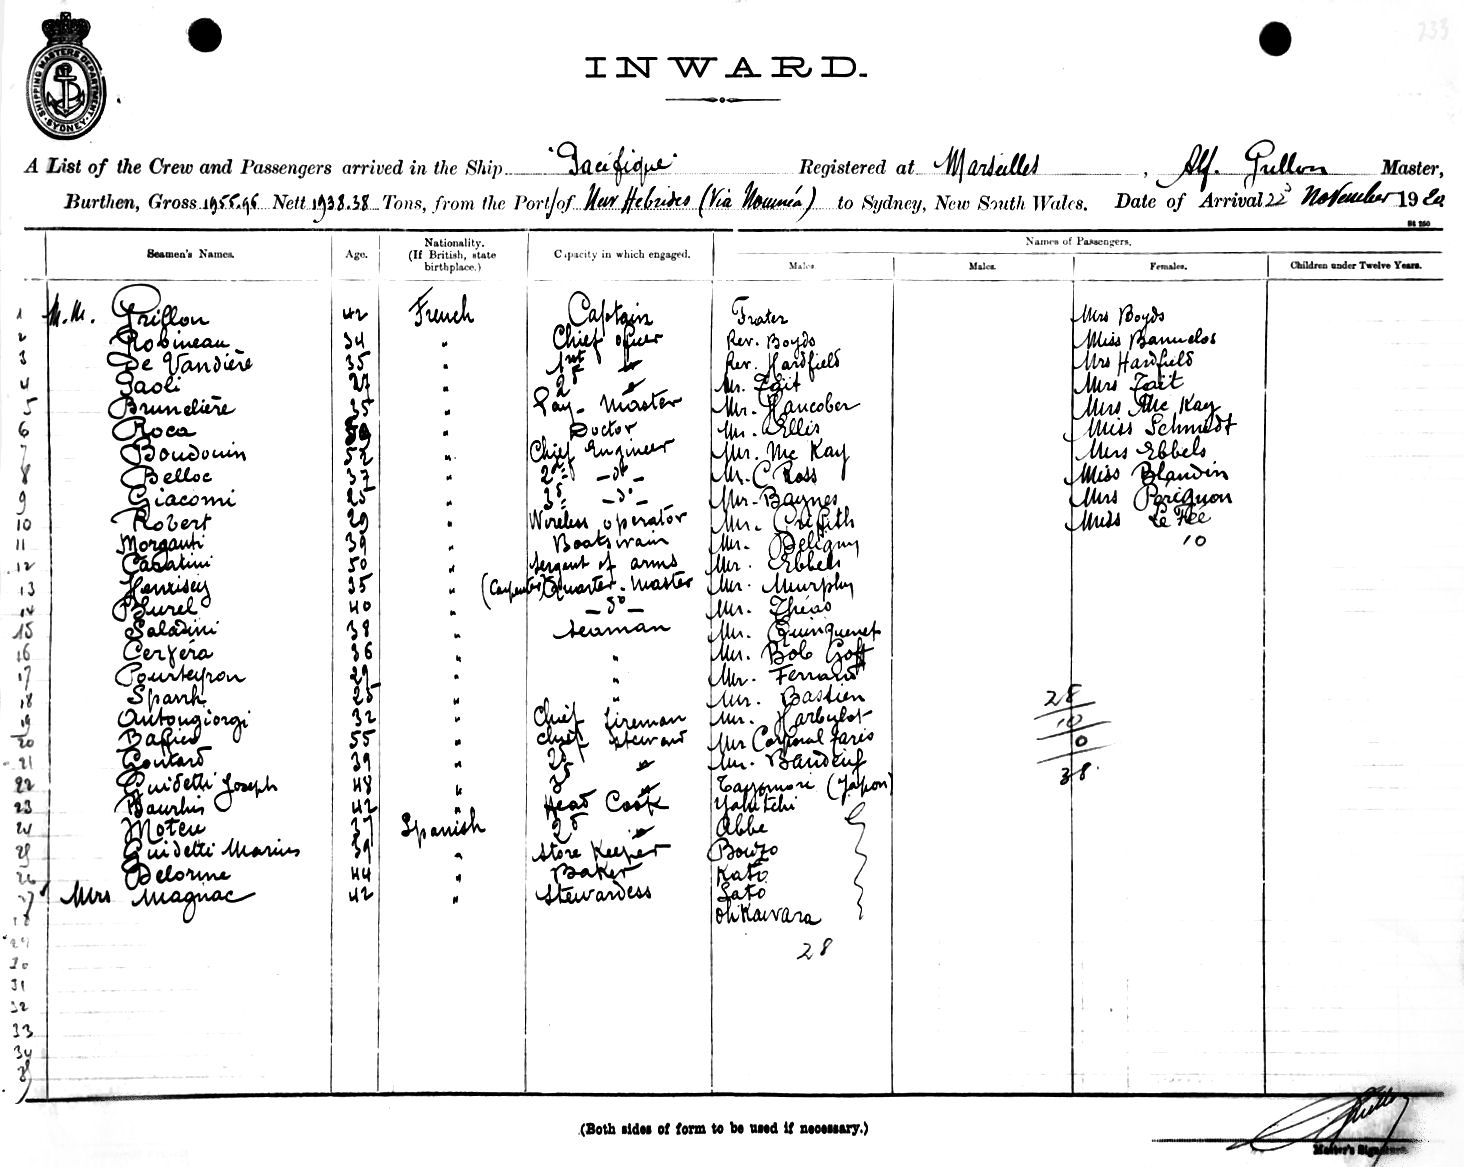 233
SHIPPING MASTERS DEPARTMENT SYDNEY
INWARD.
A List of the Crew and Passengers arrived in the Ship "Pacifique" Registered at Marseilles, Alf. Grillon Master,
Burthen, Gross 1955.96 Nett 1938.38 Tons, from the Port of New Hebrides (Via Nouméa) to Sydney, New South Wales. Date of Arrival 22d November 1920
Seamen's Names. Age. Nationality. (If British, state birthplace.) Capacity in which engaged. Names of Passengers,
Males Males. Females. Children under Twelve Years.
1 M.M. Grillon 42 French Captain Frater Mrs Boyds
2 Robineau 34 " Chief officer Rev. Boyds Miss Banuelos
3 De Vandière 35 " 1st " Rev. Hardfield Mrs Hardfield
4 Paoli 27 " 2d " Mr. Tait Mrs Tait
5 Brundière 35 " Pay-Master Mr. Hancober Mrs Mc Kay
6 Roca " Doctor Mr. Ellis Miss Schmidt
7 Boudouin 52 " Chief Engineer Mr. Mc Kay Mrs Ebbels
8 Belloc 37 " 2d -do- Mr. C Ross Miss Blandin
9 Giacomi 25 " 3d -do- Mr. Baynes Mrs Perignon
10 Robert 29 " Wireless operator Mr. Griffith Miss Le Fée
11 Morganti 39 " Boatswain Mr. Beligny 10
12 Casatini 50 " Sergent of arms Mr. Ebbels
13 35 " (Carpenter) Quarter-Master Mr. Murphy
14 Burel 40 " -do- Mr. Théas
15 Saladini 38 " Seaman Mr. Quinquenet
16 Cervéra 36 " " Mr. Bob Goff
17 Pourteyron 29 " " Mr. Ferraud
18 Spanh 25 " " Mr. Bastien 28
19 Antongiorgi 32 " Chief Fireman Mr. Harbulot 10
20 55 " Chief Steward Mr Corporal Faris 0
21 Coutard 39 " 2d " Mr. Bandeuf 38.
22 Guidetti Joseph 48 " 3d " (Japon)
23 Bourhis 42 " Head Cook
24 Moteu 37 Spanish 2d " Abbe
25 Guidetti Marius 39 " Store Keeper Bonzo
26 Delorme 44 " Baker Kato
27 Mrs Magnac 42 " Stewardess Sato
28 Ohkawara
29 28
30
31
32
33
34
35
(Both sides of form to be used if necessary.)
Master's Signature.